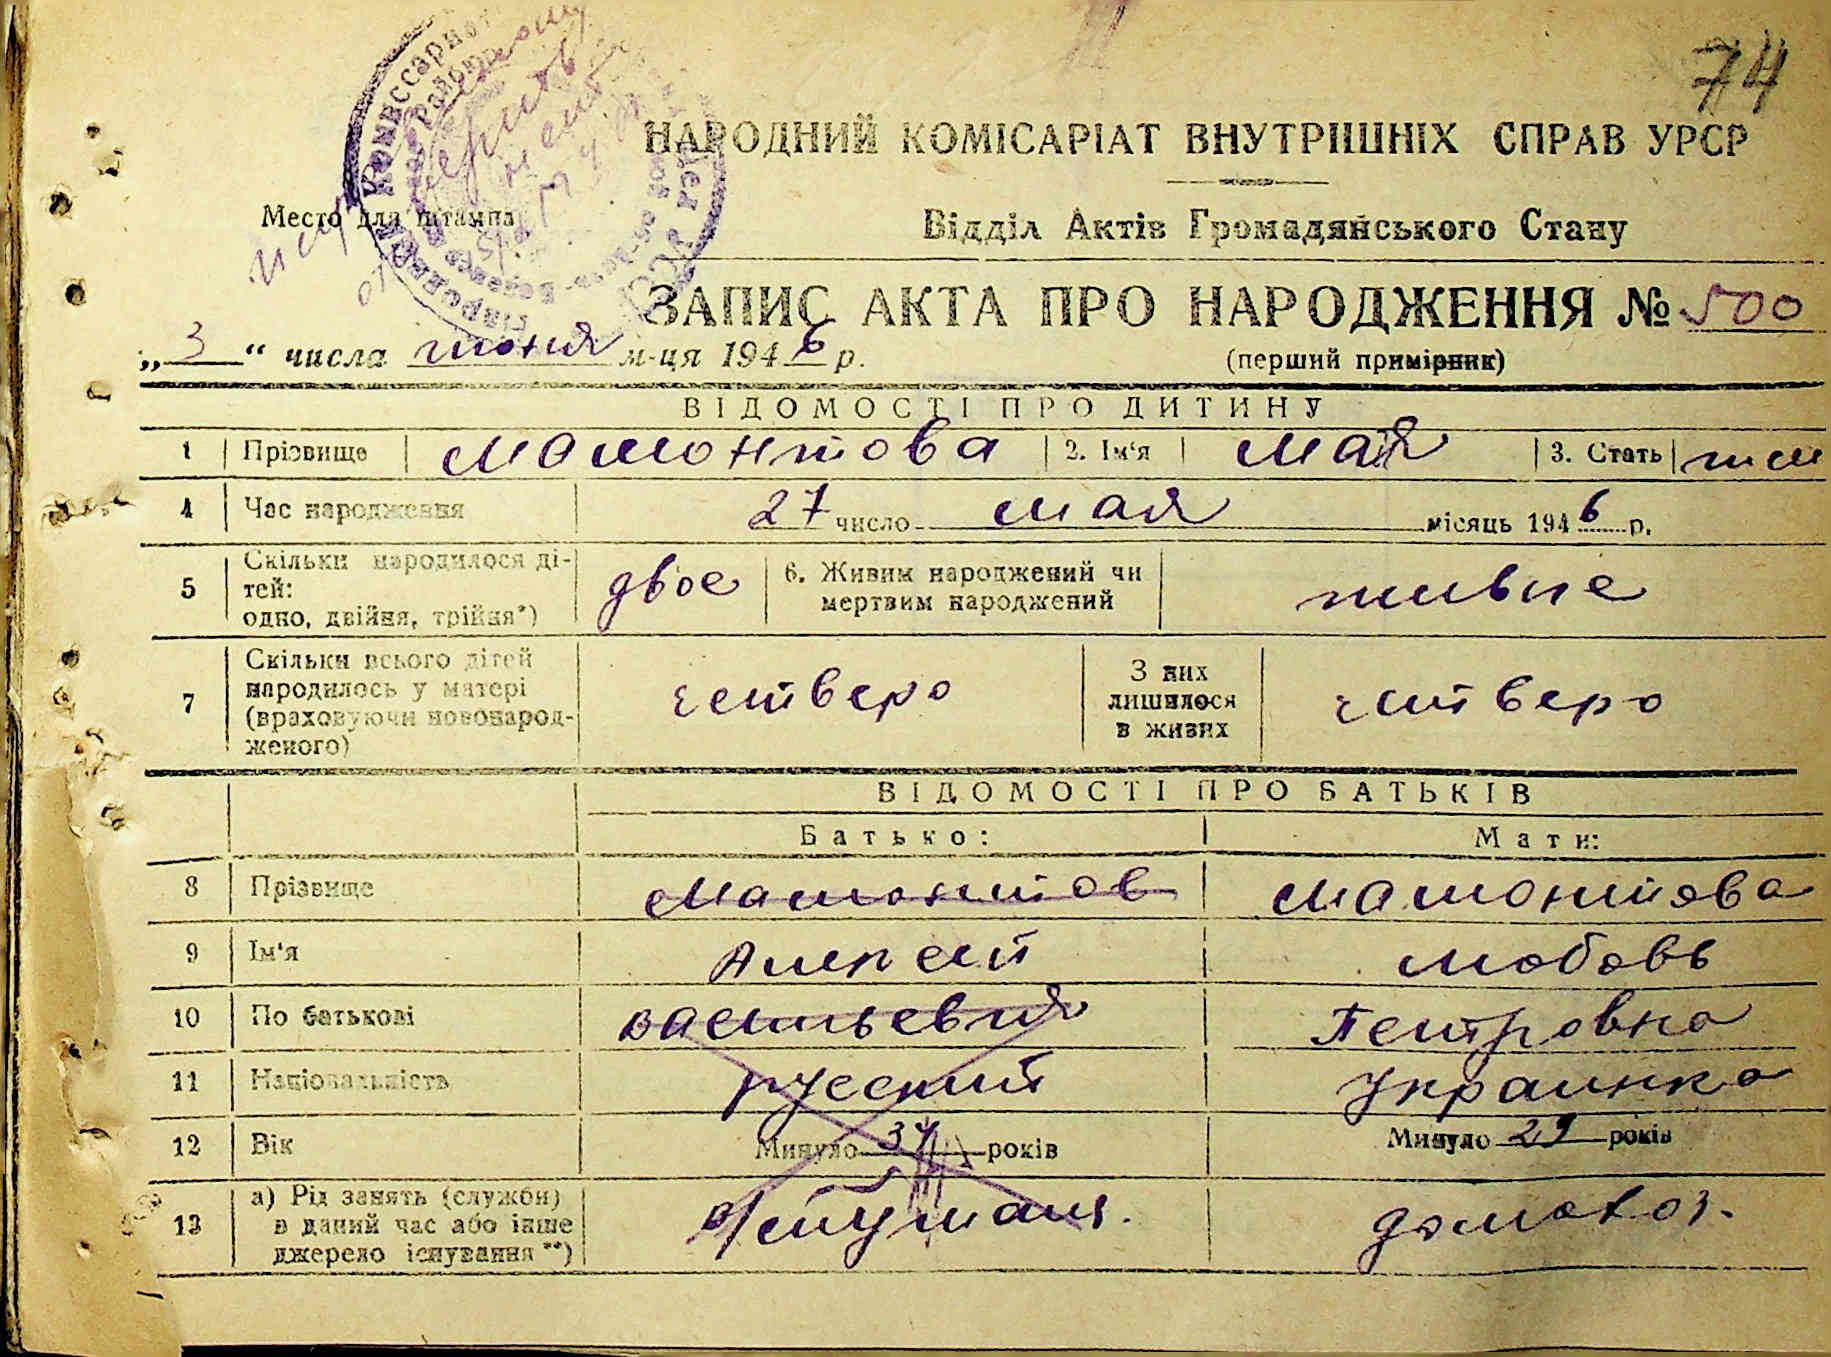 74
НАРОДНИЙ КОМІСАРІАТ ВНУТРІШНІХ СПРАВ УРСР
Место для штампа
Відділ Актів Громадянського Стану
ЗАПИС АКТА ПРО НАРОДЖЕННЯ № 500
„3“ числа июня м-ця 1946 р. (перший примірник)
ВІДОМОСТІ ПРО ДИТИНУ
1 Прізвище Мамонтова 2. Ім'я Мая 3. Стать жен
4 Час народження 27 число мая місяць 1946 р.
5 Скільки народилося ді-
тей:
одно, двійня, трійня*) двое 6. Живим народжений чи
мертвим народжений живые
7 Скільки всього дітей
народилось у матері
(враховуючи новонарод-
женого) четверо З них
лишилося
в живих четверо
ВІДОМОСТІ ПРО БАТЬКІВ
Батько: Мати:
8 Прізвище Мамонтов Мамонтова
9 Ім'я Алексей Любовь
10 По батькові Васильевич Петровна
11 Національність русский Украинка
12 Вік Минуло 34 років Минуло 29 років
13 а) Рід занять (служби)
в даний час або інше
джерело існування **) домохоз.